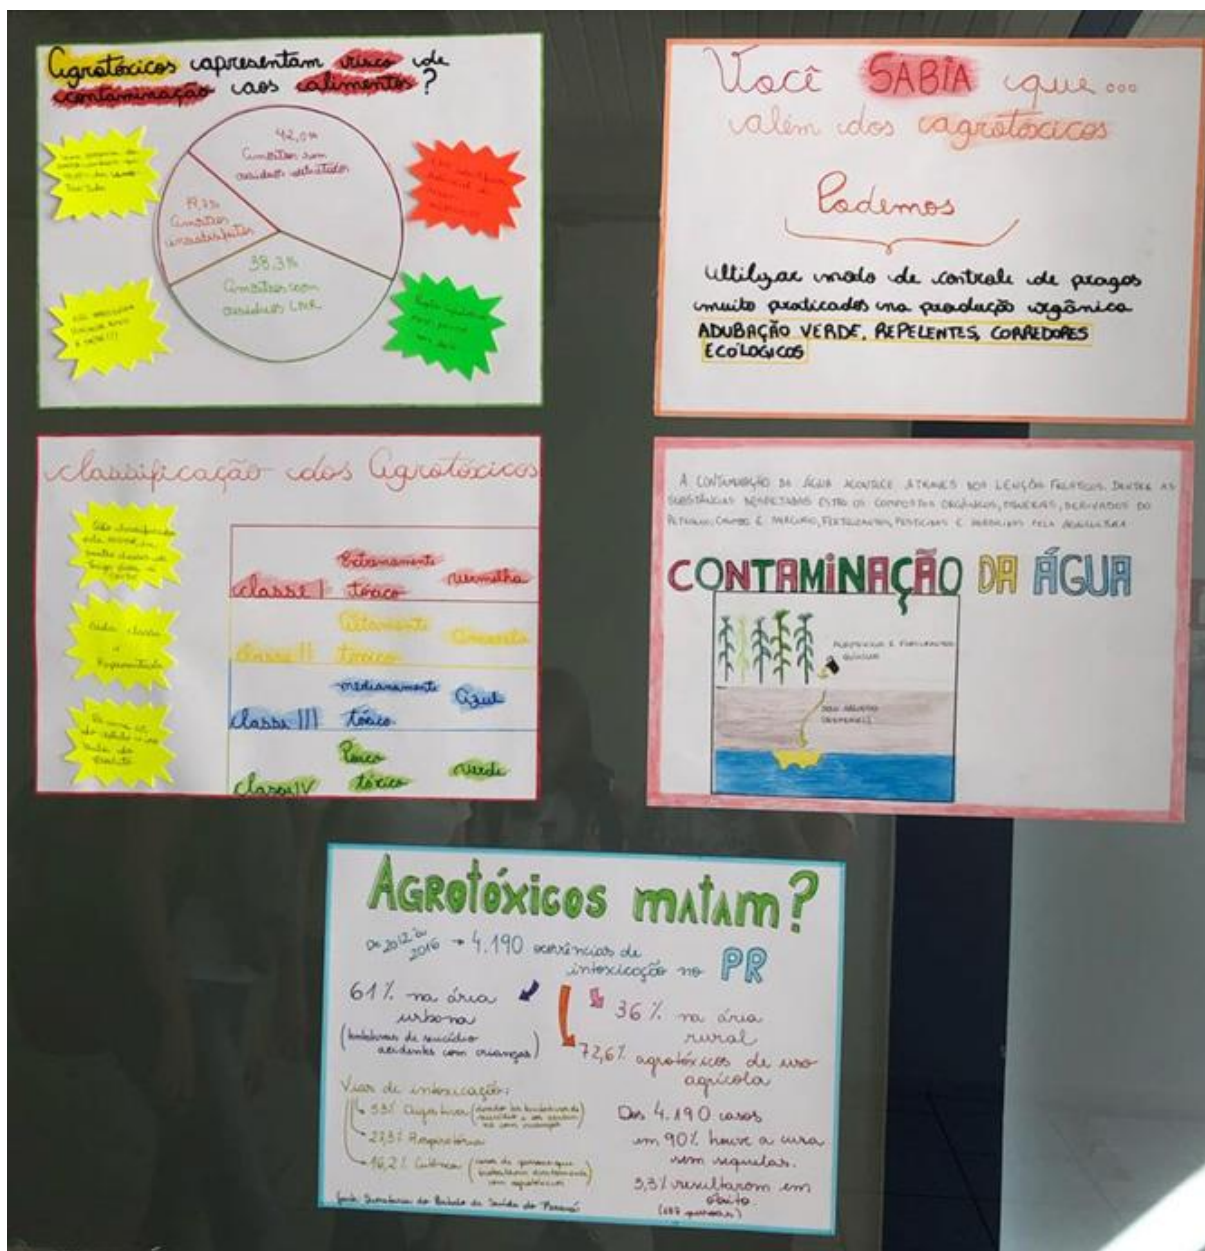 Agrotóxicos apresentam risco de
contaminação aos alimentos?
42,0%
Amostras sem
resíduos detectados
19,7%
Amostras
insatisfeitas
38,3%
Amostras com
resíduos LMR
Você SABIA que...
além dos agrotóxicos
Podemos
Utilizar modo de controle de pragas
muito praticados na produção orgânica
ADUBAÇÃO VERDE, REPELENTES, CORREDORES
ECOLOGICOS
Classificação dos Agrotóxicos
Cada classe
é
Representação
classe I Extremamente tóxico vermelha
classe II Altamente tóxico Amarela
classe III medianamente tóxico Azul
classe IV Pouco tóxico verde
A CONTAMINAÇÃO DA ÁGUA ACONTECE ATRAVES DOS LENÇÓIS FREATICOS. DENTRE AS
SUBSTÂNCIAS DESPEJADAS ESTÃO OS COMPOSTOS ORGÂNICOS, MINERAIS, DERIVADOS DO
PETROLEO, CHUMBO E MERCURIO, FERTILIZANTES, PESTICIDAS E HERBICIDAS PELA AGRICULTURA
CONTAMINAÇÃO DA ÁGUA
AGROTOXICOS E FERTILIZANTES
QUÍMICOS
SOLO
AGROTÓXICOS MATAM?
De 2012 à
2016 → 4.190 ocorrências de
intoxicação no PR
61% na área
urbana
(tentativas de suicídio
acidentes com crianças)
36% na área
rural
72,6% agrotóxicos de uso
agrícola
Vias de intoxicação:
53% Digestiva (
27,3% Respiratória
16,2% Cutânea (casos de pessoas que
trabalham diretamente
com agrotóxicos)
Fonte: Secretaria do Estado de Saúde do Paraná
Dos 4.190 casos
em 90% houve a cura
sem sequelas.
3,3% resultaram em
óbito.
pessoas)